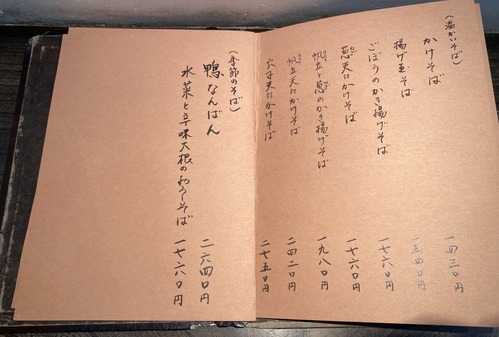 (温かいそば)
かけそば 一四三〇円
揚げ玉そば 一五四〇円
ごぼうのかき揚げそば 一七六〇円
葱天付かけそば 一七六〇円
帆立と葱のかき揚げそば 一九八〇円
帆立天付かけそば 二四二〇円
穴子天付かけそば 二七五〇円
(季節のそば)
鴨なんばん 二六四〇円
水菜と辛味大根のおろしそば 一七六〇円